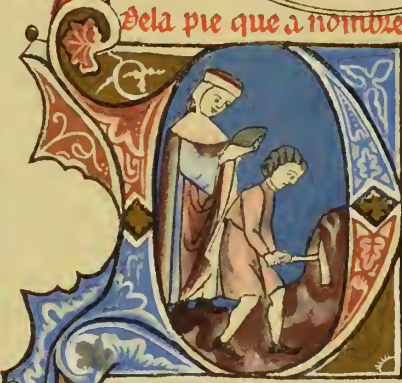 Dela pie que a nombre